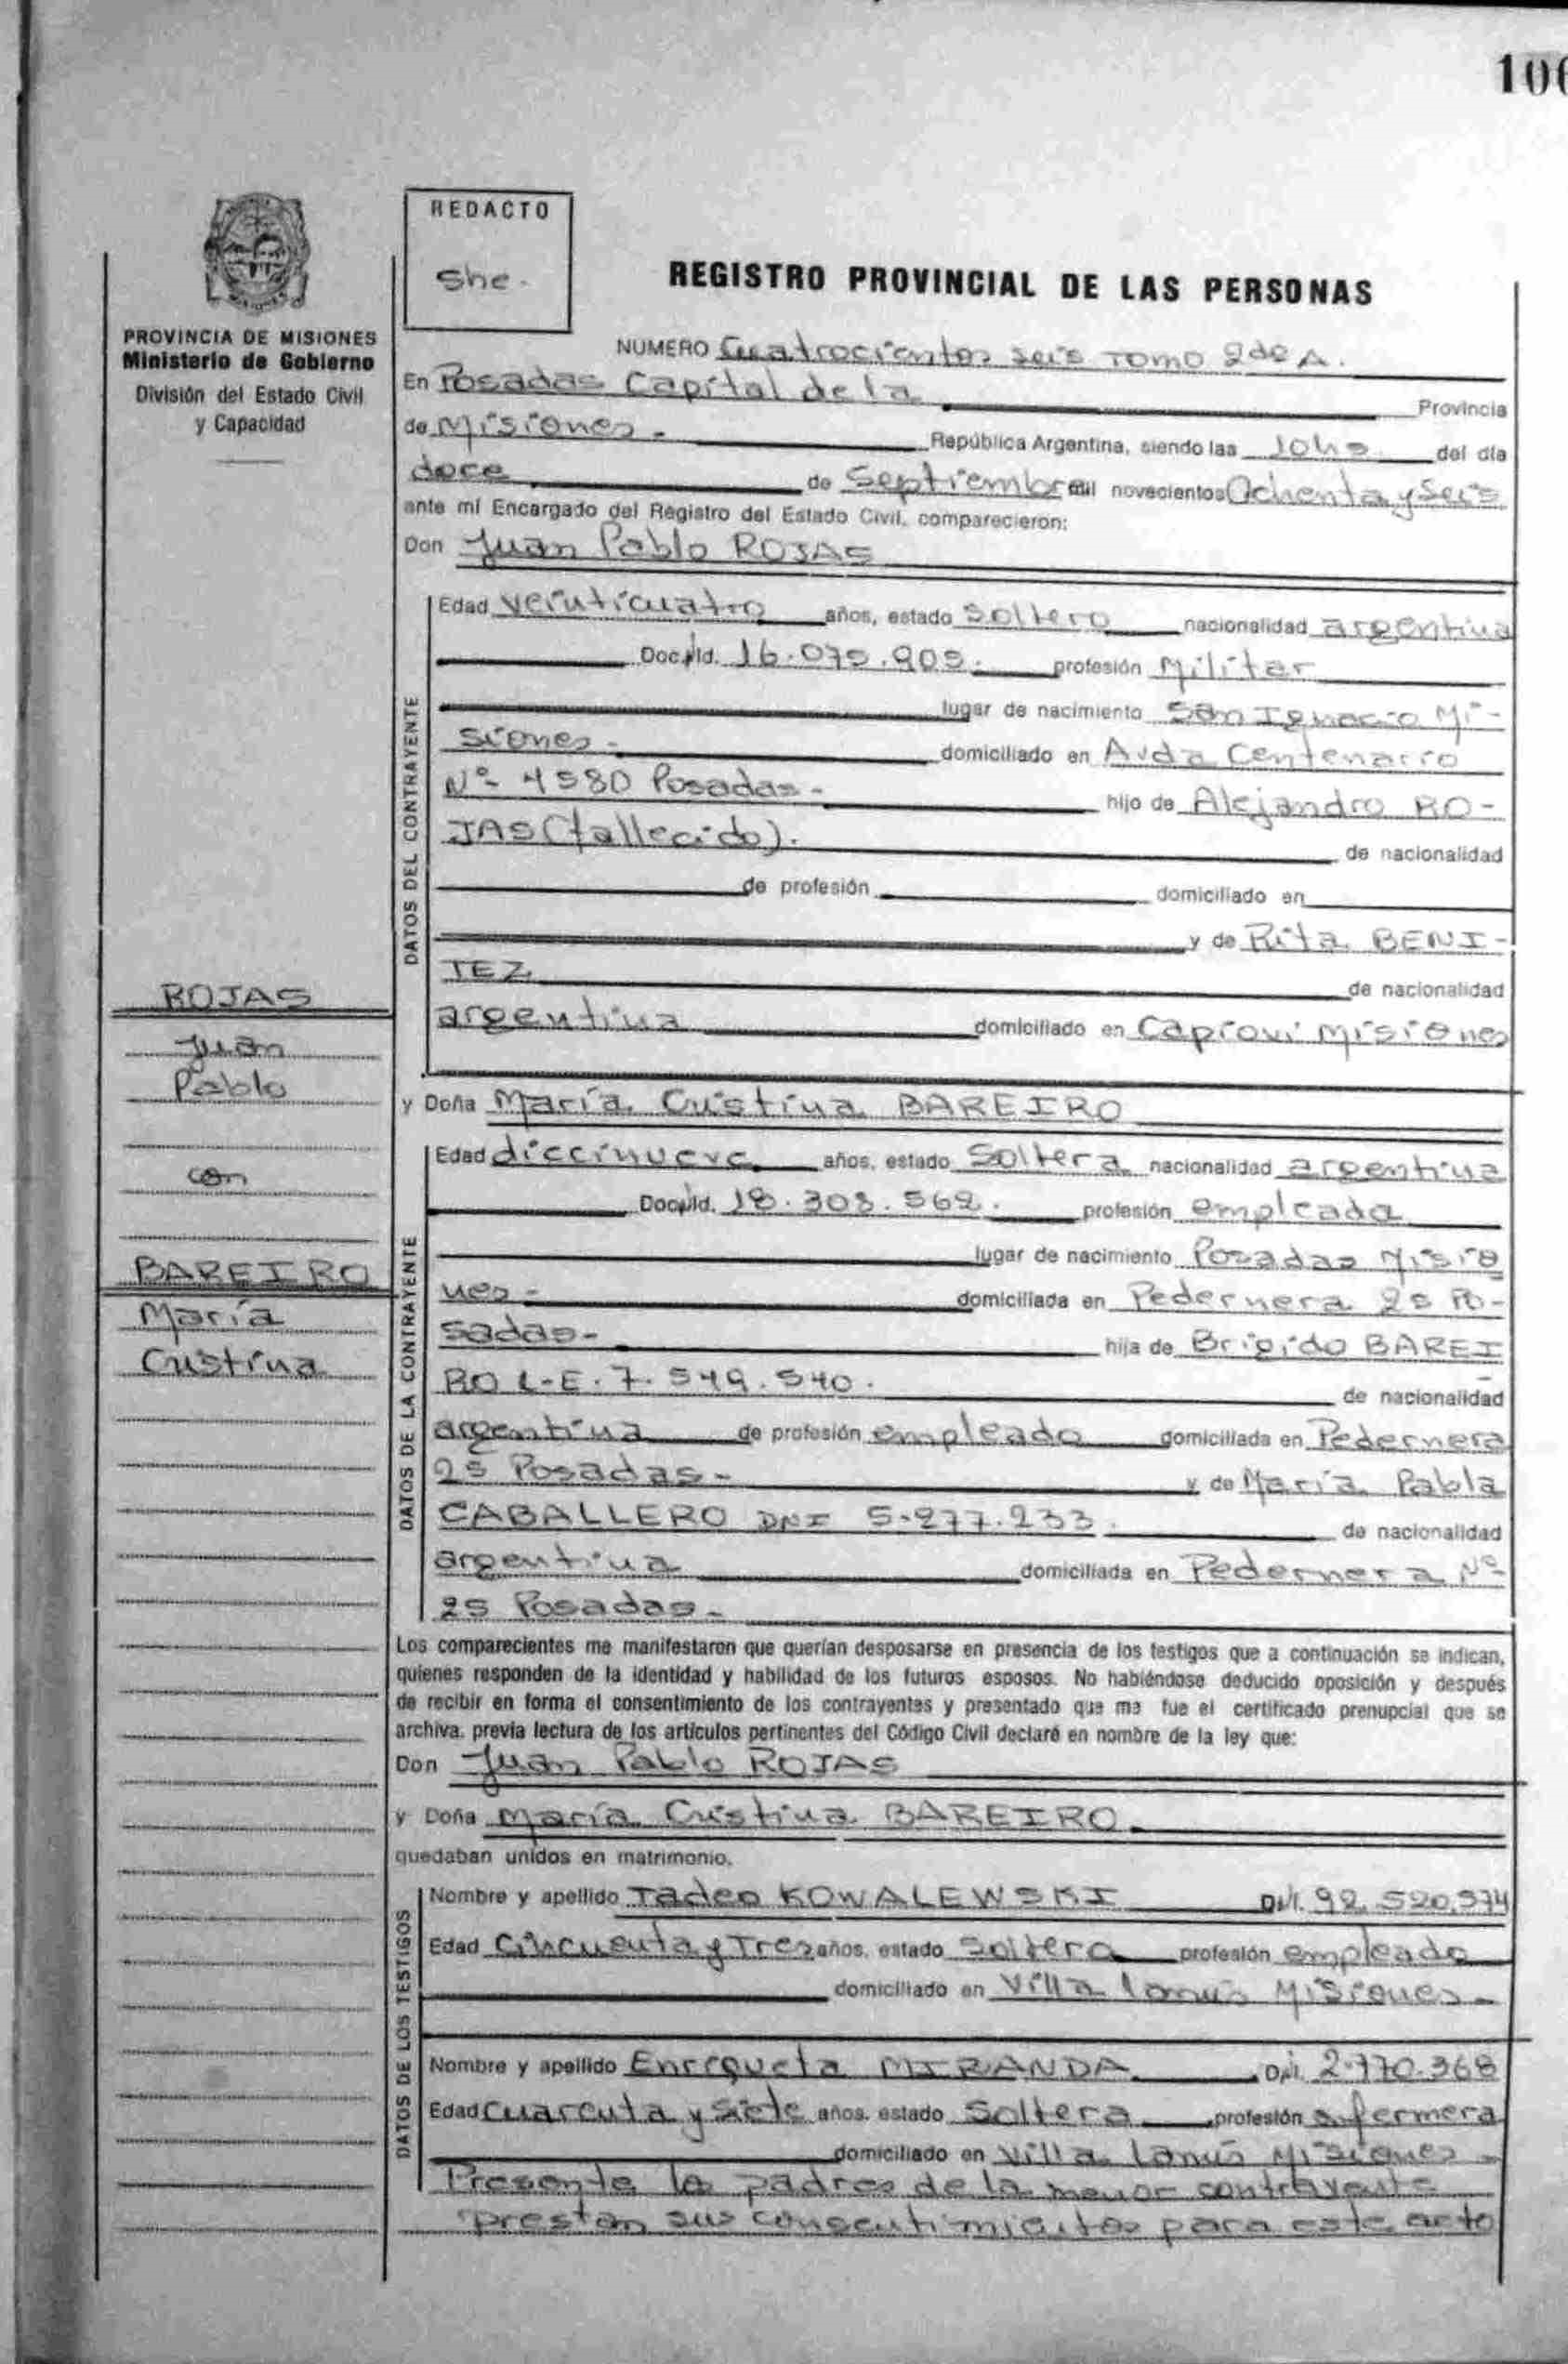 106
REDACTO
She.
PROVINCIA DE MISIONES
Ministerio de Gobierno
División del Estado Civil
y Capacidad
REGISTRO PROVINCIAL DE LAS PERSONAS
NUMERO Cuatrocientos seis Tomo 2do A.
En Posadas Capital de la Provincia
de Misiones - República Argentina, siendo las 10hs. del día
doce de Septiembre mil novecientos Ochenta y Seis
ante mí Encargado del Registro del Estado Civil, comparecieron:
Don Juan Pablo ROJAS
DATOS DEL CONTRAYENTE
Edad veinticuatro años, estado Soltero nacionalidad argentina
Doc. Id. 16.075.905. profesión Militar
lugar de nacimiento San Ignacio Mi-
siones - domiciliado en Avda Centenario
Nº 4580 Posadas - hijo de Alejandro RO-
JAS (fallecido). de nacionalidad
de profesión domiciliado en
y de Rita BENI-
TEZ de nacionalidad
argentina domiciliado en Capiovi Misiones
ROJAS
Juan
Pablo
con
BAREIRO
María
Cristina
y Doña María Cristina BAREIRO
DATOS DE LA CONTRAYENTE
Edad diecinueve años, estado Soltera nacionalidad argentina
Doc. Id. 18.308.562. profesión empleada
lugar de nacimiento Posadas Misio
nes - domiciliada en Pedernera 25 Po-
sadas - hija de Brigido BAREI
RO L.E. 7.549.540. de nacionalidad
argentina de profesión empleado domiciliada en Pedernera
25 Posadas - y de María Pabla
CABALLERO DNI 5.277.233. de nacionalidad
argentina domiciliada en Pedernera Nº
25 Posadas -
Los comparecientes me manifestaron que querían desposarse en presencia de los testigos que a continuación se indican,
quienes responden de la identidad y habilidad de los futuros esposos. No habiéndose deducido oposición y después
de recibir en forma el consentimiento de los contrayentes y presentado que me fue el certificado prenupcial que se
archiva. previa lectura de los artículos pertinentes del Código Civil declaré en nombre de la ley que:
Don Juan Pablo ROJAS
y Doña María Cristina BAREIRO
quedaban unidos en matrimonio.
DATOS DE LOS TESTIGOS
Nombre y apellido Tadeo KOWALEWSKI D.I. 92.520.574
Edad Cincuenta y Tres años, estado Soltero profesión empleado
domiciliado en Villa Lanús Misiones -
Nombre y apellido Enriqueta MIRANDA D.I. 2.770.368
Edad Cuarenta y Siete años, estado Soltera profesión enfermera
domiciliado en Villa Lanús Misiones -
Presente lo padres de la menor contrayente
prestan sus consentimientos para este acto